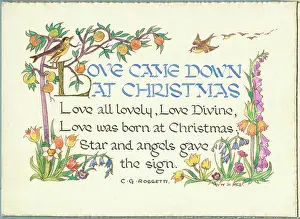 LOVE CAME DOWN
AT CHRISTMAS
Love all lovely, Love Divine,
Love was born at Christmas
Star and angels gave
the sign.
C·G·ROSSETTI